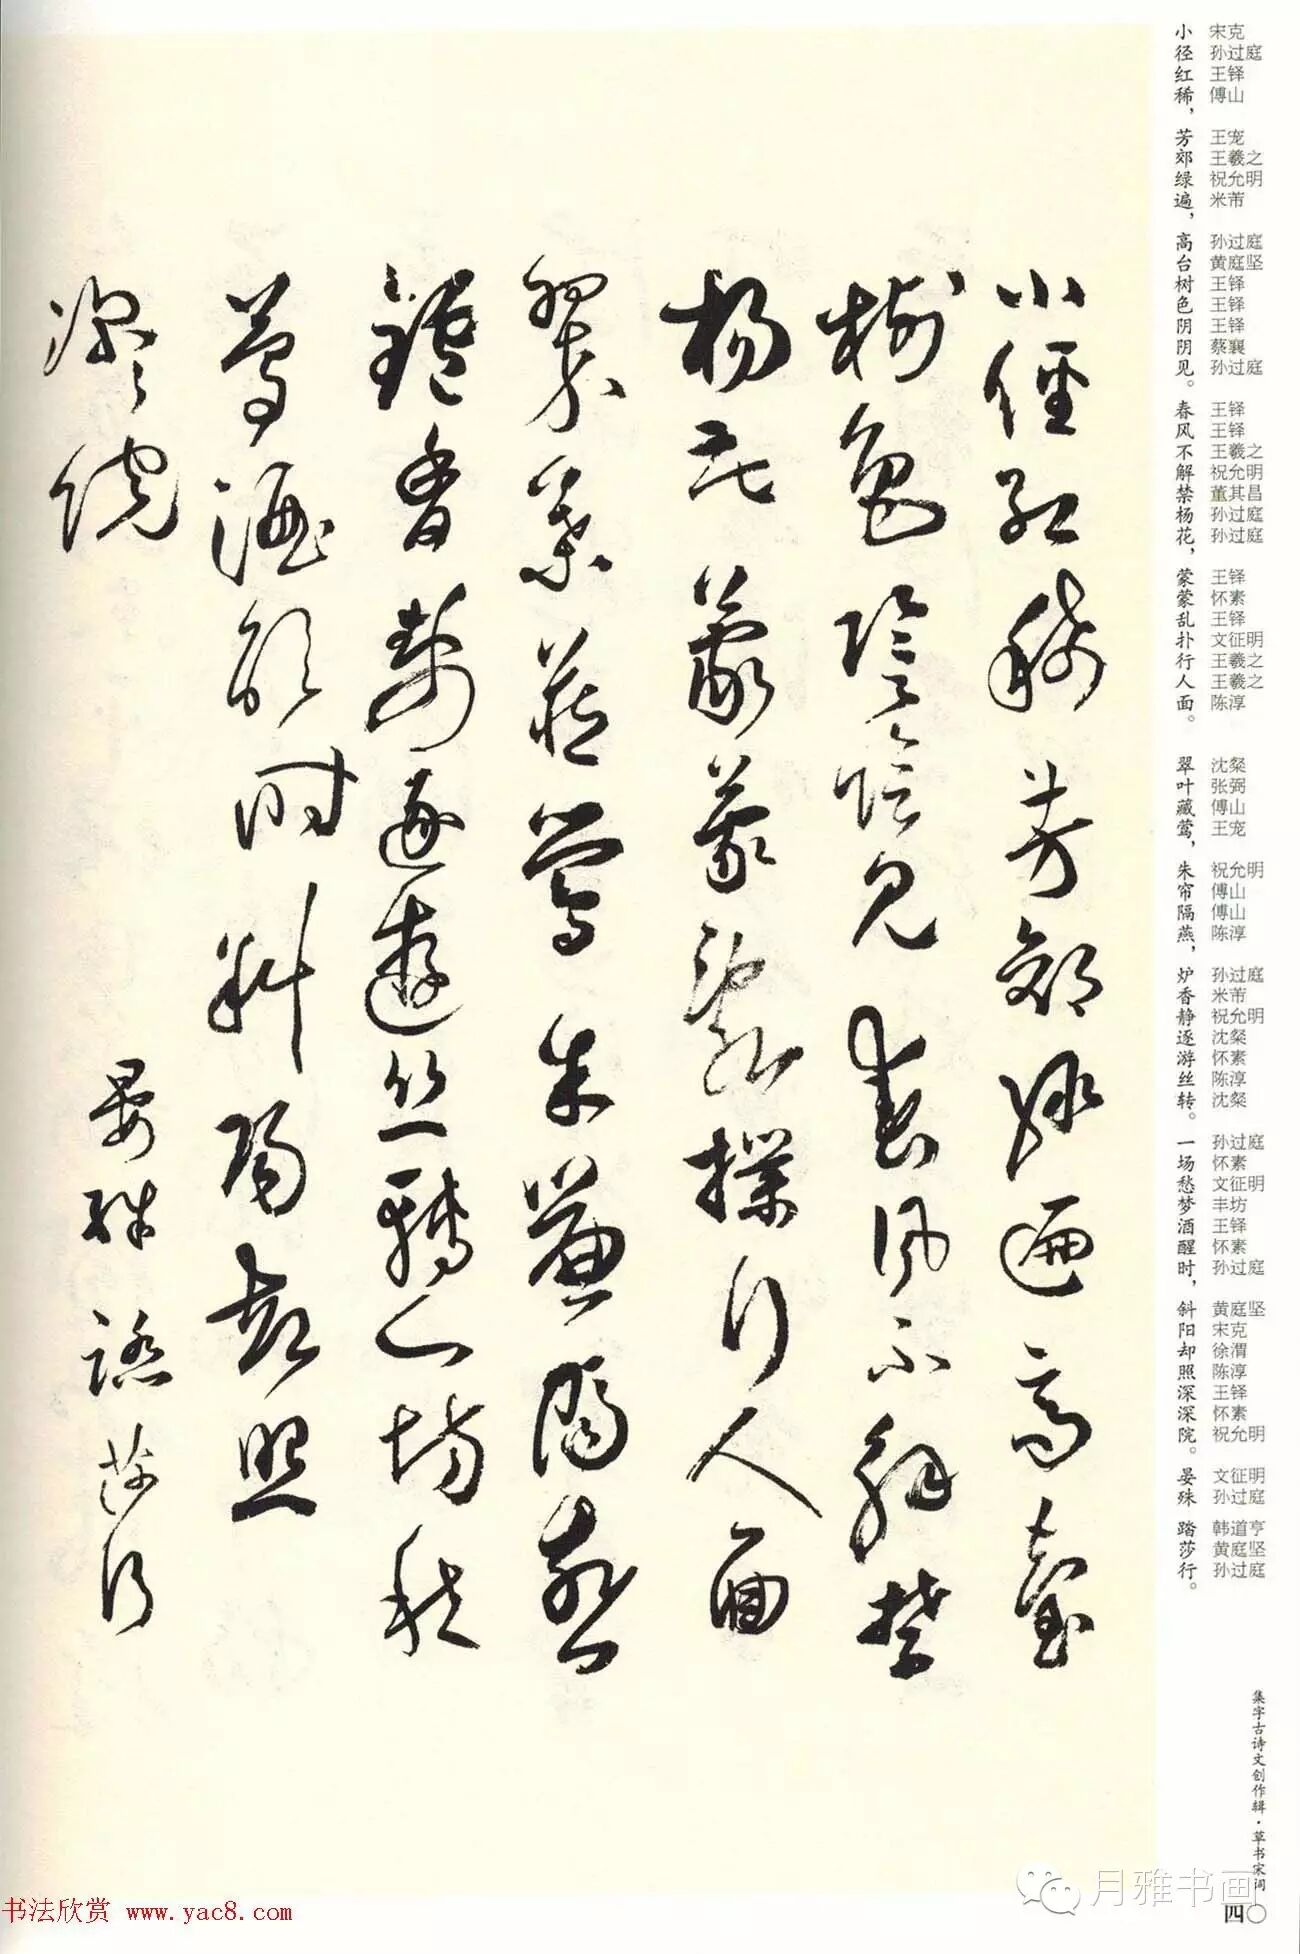 小徑紅稀芳郊綠遍高臺
樹色陰陰見春風不解禁
楊花蒙蒙亂撲行人面
翠葉藏鶯朱簾隔燕
鑪香靜逐遊絲轉一場愁
夢酒醒時斜陽卻照
深深院 晏殊踏莎行
小径红稀，芳郊绿遍，高台树色阴阴见。春风不解禁杨花，蒙蒙乱扑行人面。 翠叶藏莺，朱帘隔燕，炉香静逐游丝转。一场愁梦酒醒时，斜阳却照深深院。晏殊 踏莎行。
宋克 孙过庭 王铎 傅山 王宠 王羲之 祝允明 米芾 孙过庭 黄庭坚 王铎 王铎 王铎 蔡襄 孙过庭 王铎 王铎 王羲之 祝允明 董其昌 孙过庭 孙过庭 王铎 怀素 王铎 文征明 王羲之 王羲之 陈淳 沈粲 张弼 傅山 王宠 祝允明 傅山 傅山 陈淳 孙过庭 米芾 祝允明 沈粲 怀素 陈淳 沈粲 孙过庭 怀素 文征明 丰坊 王铎 怀素 孙过庭 黄庭坚 宋克 徐渭 陈淳 王铎 怀素 祝允明 文征明 孙过庭 韩道亨 黄庭坚 孙过庭
集字古诗文创作辑·草书宋词
四〇
月雅书画
书法欣赏 www.yac8.com